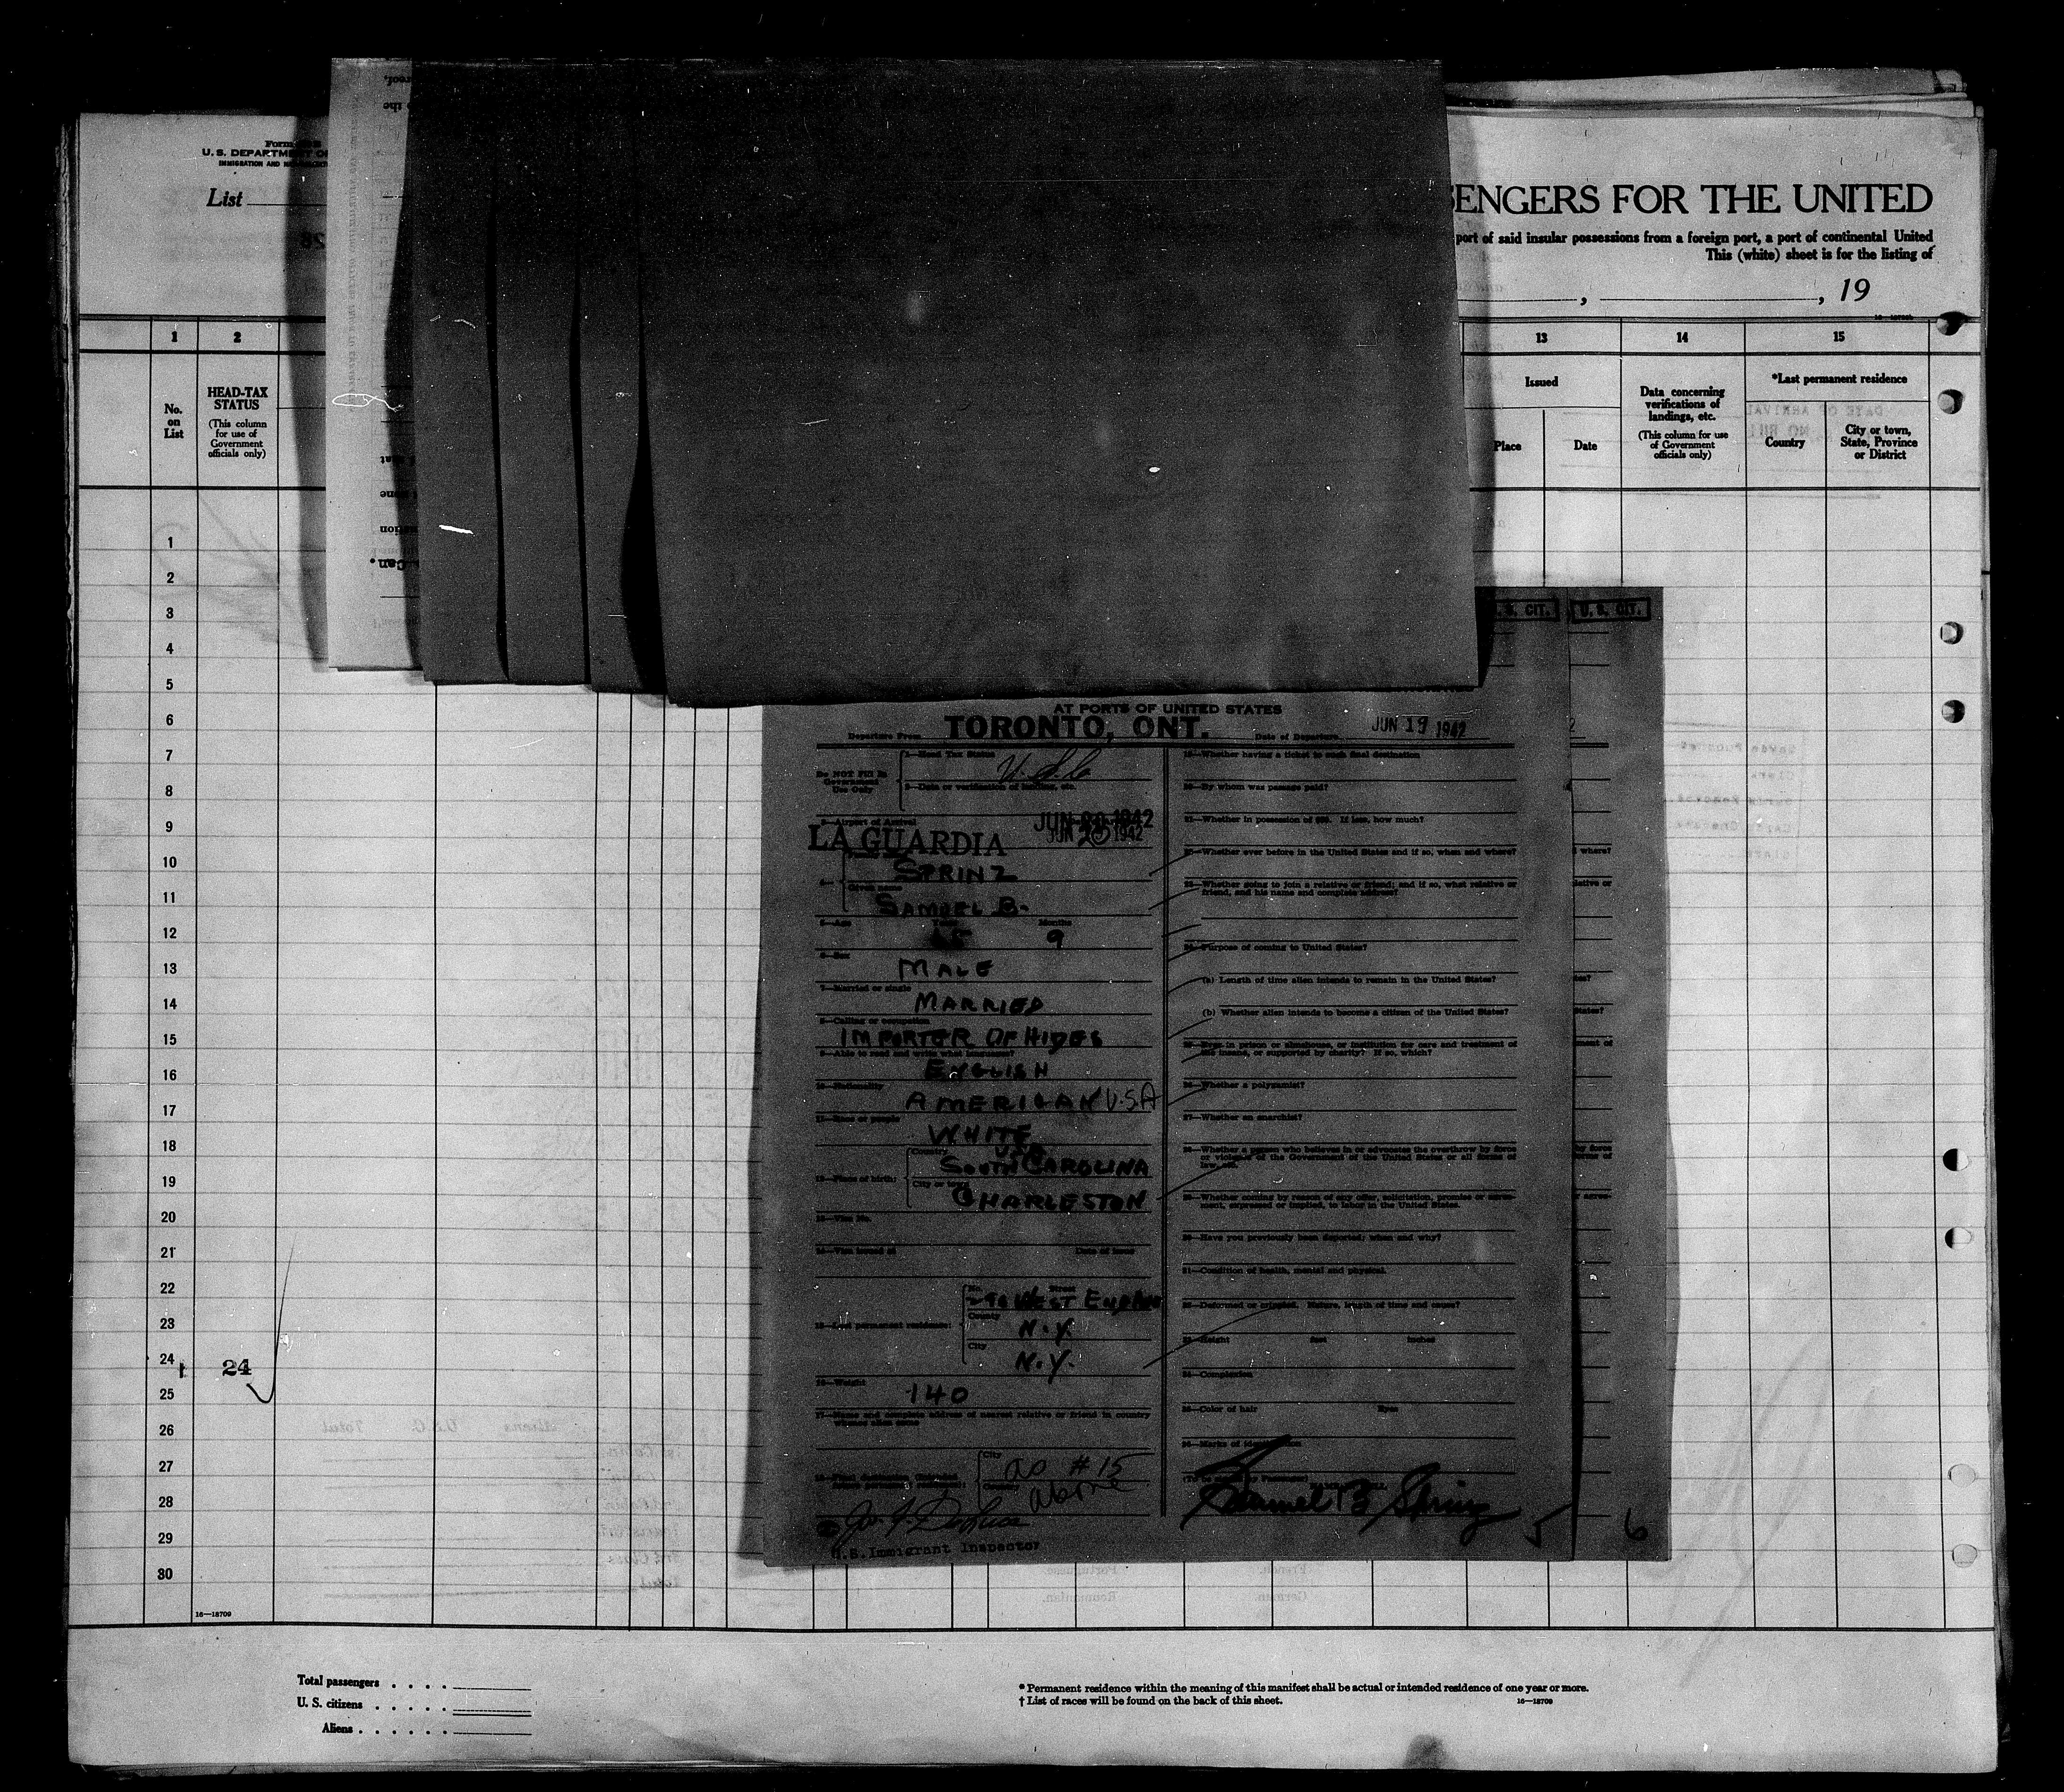 U. S. DEPARTMENT OF
IMMIGRATION AND
List
SENGERS FOR THE UNITED
port of said insular possessions from a foreign port, a port of continental United
This (white) sheet is for the listing of
, , 19
1 2 13 14 15
No. on List
HEAD-TAX STATUS
(This column for use of Government officials only)
Issued
Place Date
Data concerning verifications of landings, etc.
(This column for use of Government officials only)
*Last permanent residence
Country
City or town, State, Province or District
1
2
3
4
5
6
7
8
9
10
11
12
13
14
15
16
17
18
19
20
21
22
23
24
24
25
26
27
28
29
30
16—18709
U. S. CIT.
AT PORTS OF UNITED STATES
Departure From TORONTO, ONT. Date of Departure JUN 19 1942
Do NOT Fill In Government Use Only
1—Head Tax Status
U.S.C
2—Date or verification of landing, etc.
3—Airport of Arrival
LA GUARDIA JUN 20 1942
JUN 20 1942
SPRINZ
Given name
SAMUEL B.
5—Age Years Months
9
6—Sex
MALE
7—Married or single
MARRIED
8—Calling or occupation
IMPORTER OF HIDES
9—Able to read and write what languages?
ENGLISH
10—Nationality
AMERICAN U.S.A
11—Race or people
WHITE
12—Place of birth:
Country
USA
SOUTH CAROLINA
City or town
CHARLESTON
13—Visa No.
14—Visa issued at Date of issue
15—Last permanent residence:
No. Street
WEST END AVE
County
N.Y.
City
N.Y.
16—Weight
140
17—Name and complete address of nearest relative or friend in country whence alien came
City
as #15
above
U.S. Immigrant Inspector
19—Whether having a ticket to such final destination
20—By whom was passage paid?
21—Whether in possession of $50. If less, how much?
22—Whether ever before in the United States and if so, when and where?
23—Whether going to join a relative or friend; and if so, what relative or
friend, and his name and complete address?
24—Purpose of coming to United States?
(a) Length of time alien intends to remain in the United States?
(b) Whether alien intends to become a citizen of the United States?
25—Ever in prison or almshouse, or institution for care and treatment of
the insane, or supported by charity? If so, which?
26—Whether a polygamist?
27—Whether an anarchist?
28—Whether a person who believes in or advocates the overthrow by force
or violence of the Government of the United States or all forms of
law, etc.
29—Whether coming by reason of any offer, solicitation, promise or agree-
ment, expressed or implied, to labor in the United States.
30—Have you previously been deported; when and why?
31—Condition of health, mental and physical.
32—Deformed or crippled. Nature, length of time and cause?
33—Height feet inches
34—Complexion
35—Color of hair Eyes
36—Marks of identification
(To be signed by Passenger)
Samuel B Sprinz
5 6
Total passengers . . . .
U. S. citizens . . . . .
Aliens . . . . . .
* Permanent residence within the meaning of this manifest shall be actual or intended residence of one year or more.
† List of races will be found on the back of this sheet.
16—18709